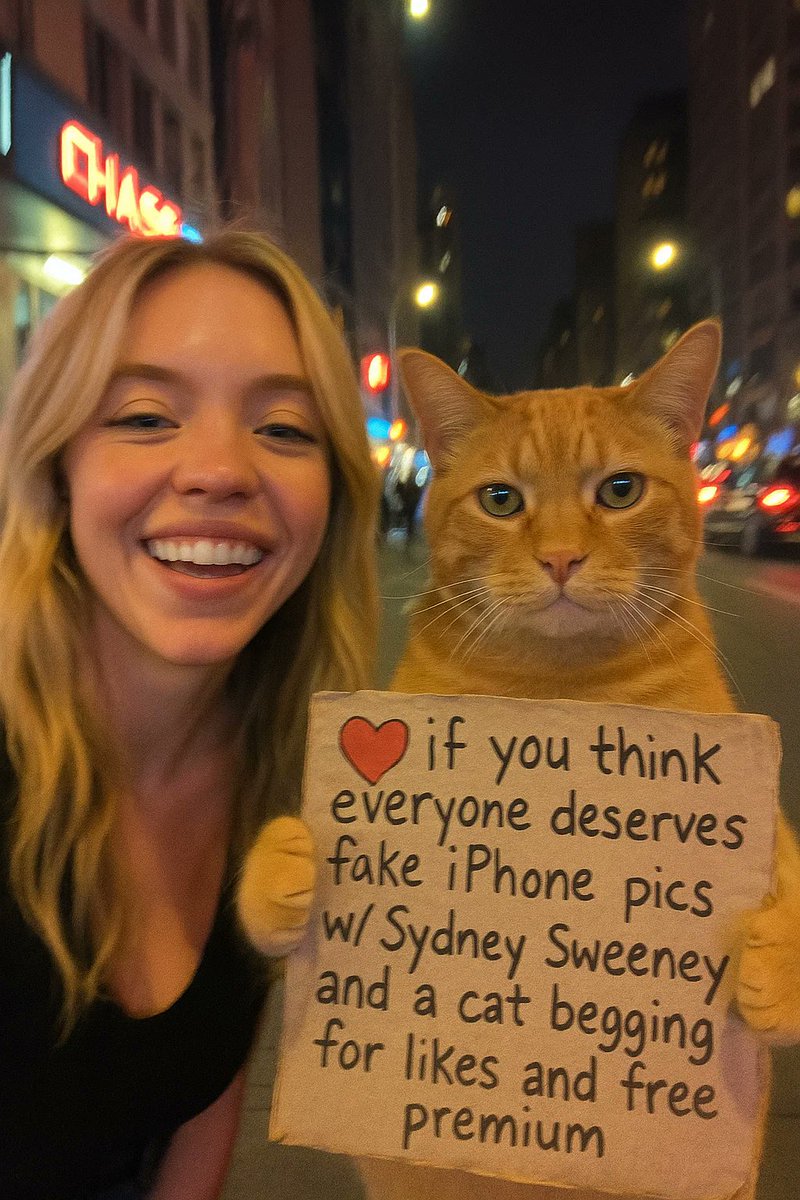 CHASE
❤️ if you think
everyone deserves
fake iPhone pics
w/ Sydney Sweeney
and a cat begging
for likes and free
premium